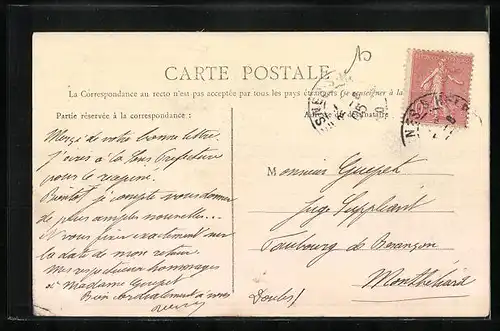 CARTE POSTALE
La Correspondance au recto n'est pas acceptée par tous les pays étrangers (se renseigner à la
Partie réservée à la correspondance :
Adresse du destinataire
Merci de votre bonne lettre.
J'irai à la Sous Préfecture
pour le
Bientôt je compte vous donner
de plus amples nouvelles...
et vous fixer exactement sur
la date de mon retour.
Mes respectueux hommages
à Madame Guepet
Bien cordialement à vous
Monsieur Guepet
Juge Suppléant
Faubourg de Besançon
Montbéliard
Doubs